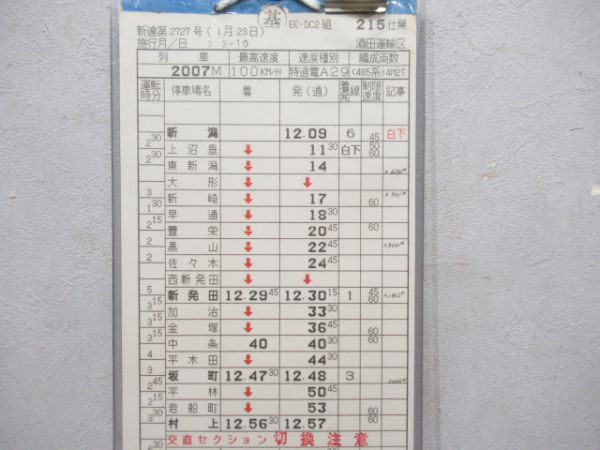 新達第2727号(1月23日) 基 EC・DC2組 215仕業
施行月/日 3-10 酒田運輸区
列車 最高速度 速度種別 編成両数
2007M 100KM/H 特通電A29 (485系)4M2T
運転時分 停車場名 着 発(通) 着発線 制限速度 記事
新潟 12.09 6 45 白下
2 30 上沼垂 ↓ 11 30 白下 50 60
2 30 東新潟 ↓ 14
大形 ↓ ↓
3 新崎 ↓ 17 60
1 30 早通 ↓ 18 30
2 豊栄 ↓ 20 45 60
2 黒山 ↓ 22 45
2 佐々木 ↓ 24 45
西新発田 ↓ ↓
5 新発田 12.29 45 12.30 15 1 45 60
3 15 加治 ↓ 33 30
3 15 金塚 ↓ 36 45 60
3 45 中条 40 40 30 60
4 平木田 ↓ 44 30
3 坂町 12.47 30 12.48 3
2 45 平林 ↓ 50 45
2 15 岩船町 ↓ 53 60
3 30 村上 12.56 30 12.57 60
交直セクション切換注意
6 30